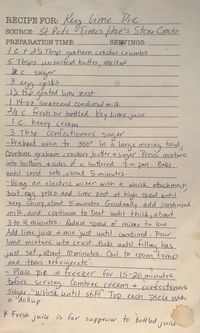 RECIPE FOR: Key Lime Pie
SOURCE: St. Pete Times/Joe's Stone Crab
PREPARATION TIME: SERVINGS:
1 C + 2½ Tbsp graham cracker crumbs
5 Tbsps unsalted butter, melted
C sugar
3 egg yolks
1½ tsp grated lime zest
1 14-oz sweetened condensed milk
2/3 C fresh or bottled key lime juice
1 C heavy cream
3 Tbsp confectioners sugar
- Preheat oven to 350°. In a large mixing bowl,
Combine graham crackers, butter + sugar. Press mixture
into bottom + sides of a buttered 9-in pan. Bake
until crust sets, about 5 minutes.
- Using an electric mixer with a whisk attachment,
beat egg yolks and lime zest at high speed until
very shiny, about 5 minutes. Gradually add condensed
milk and continue to beat until thick, about
3 to 4 minutes. Reduce speed of mixer to low.
Add lime juice + mix just until combined. Pour
lime mixture into crust. Bake until filling has
just set, about 10 minutes. Cool to room temp
and then refrigerate.
- Place pie in freezer for 15-20 minutes
before serving. Combine cream + confectioners
sugar, whisk until stiff. Top each piece with
a dollup.
* Fresh juice is far superior to bottled juice